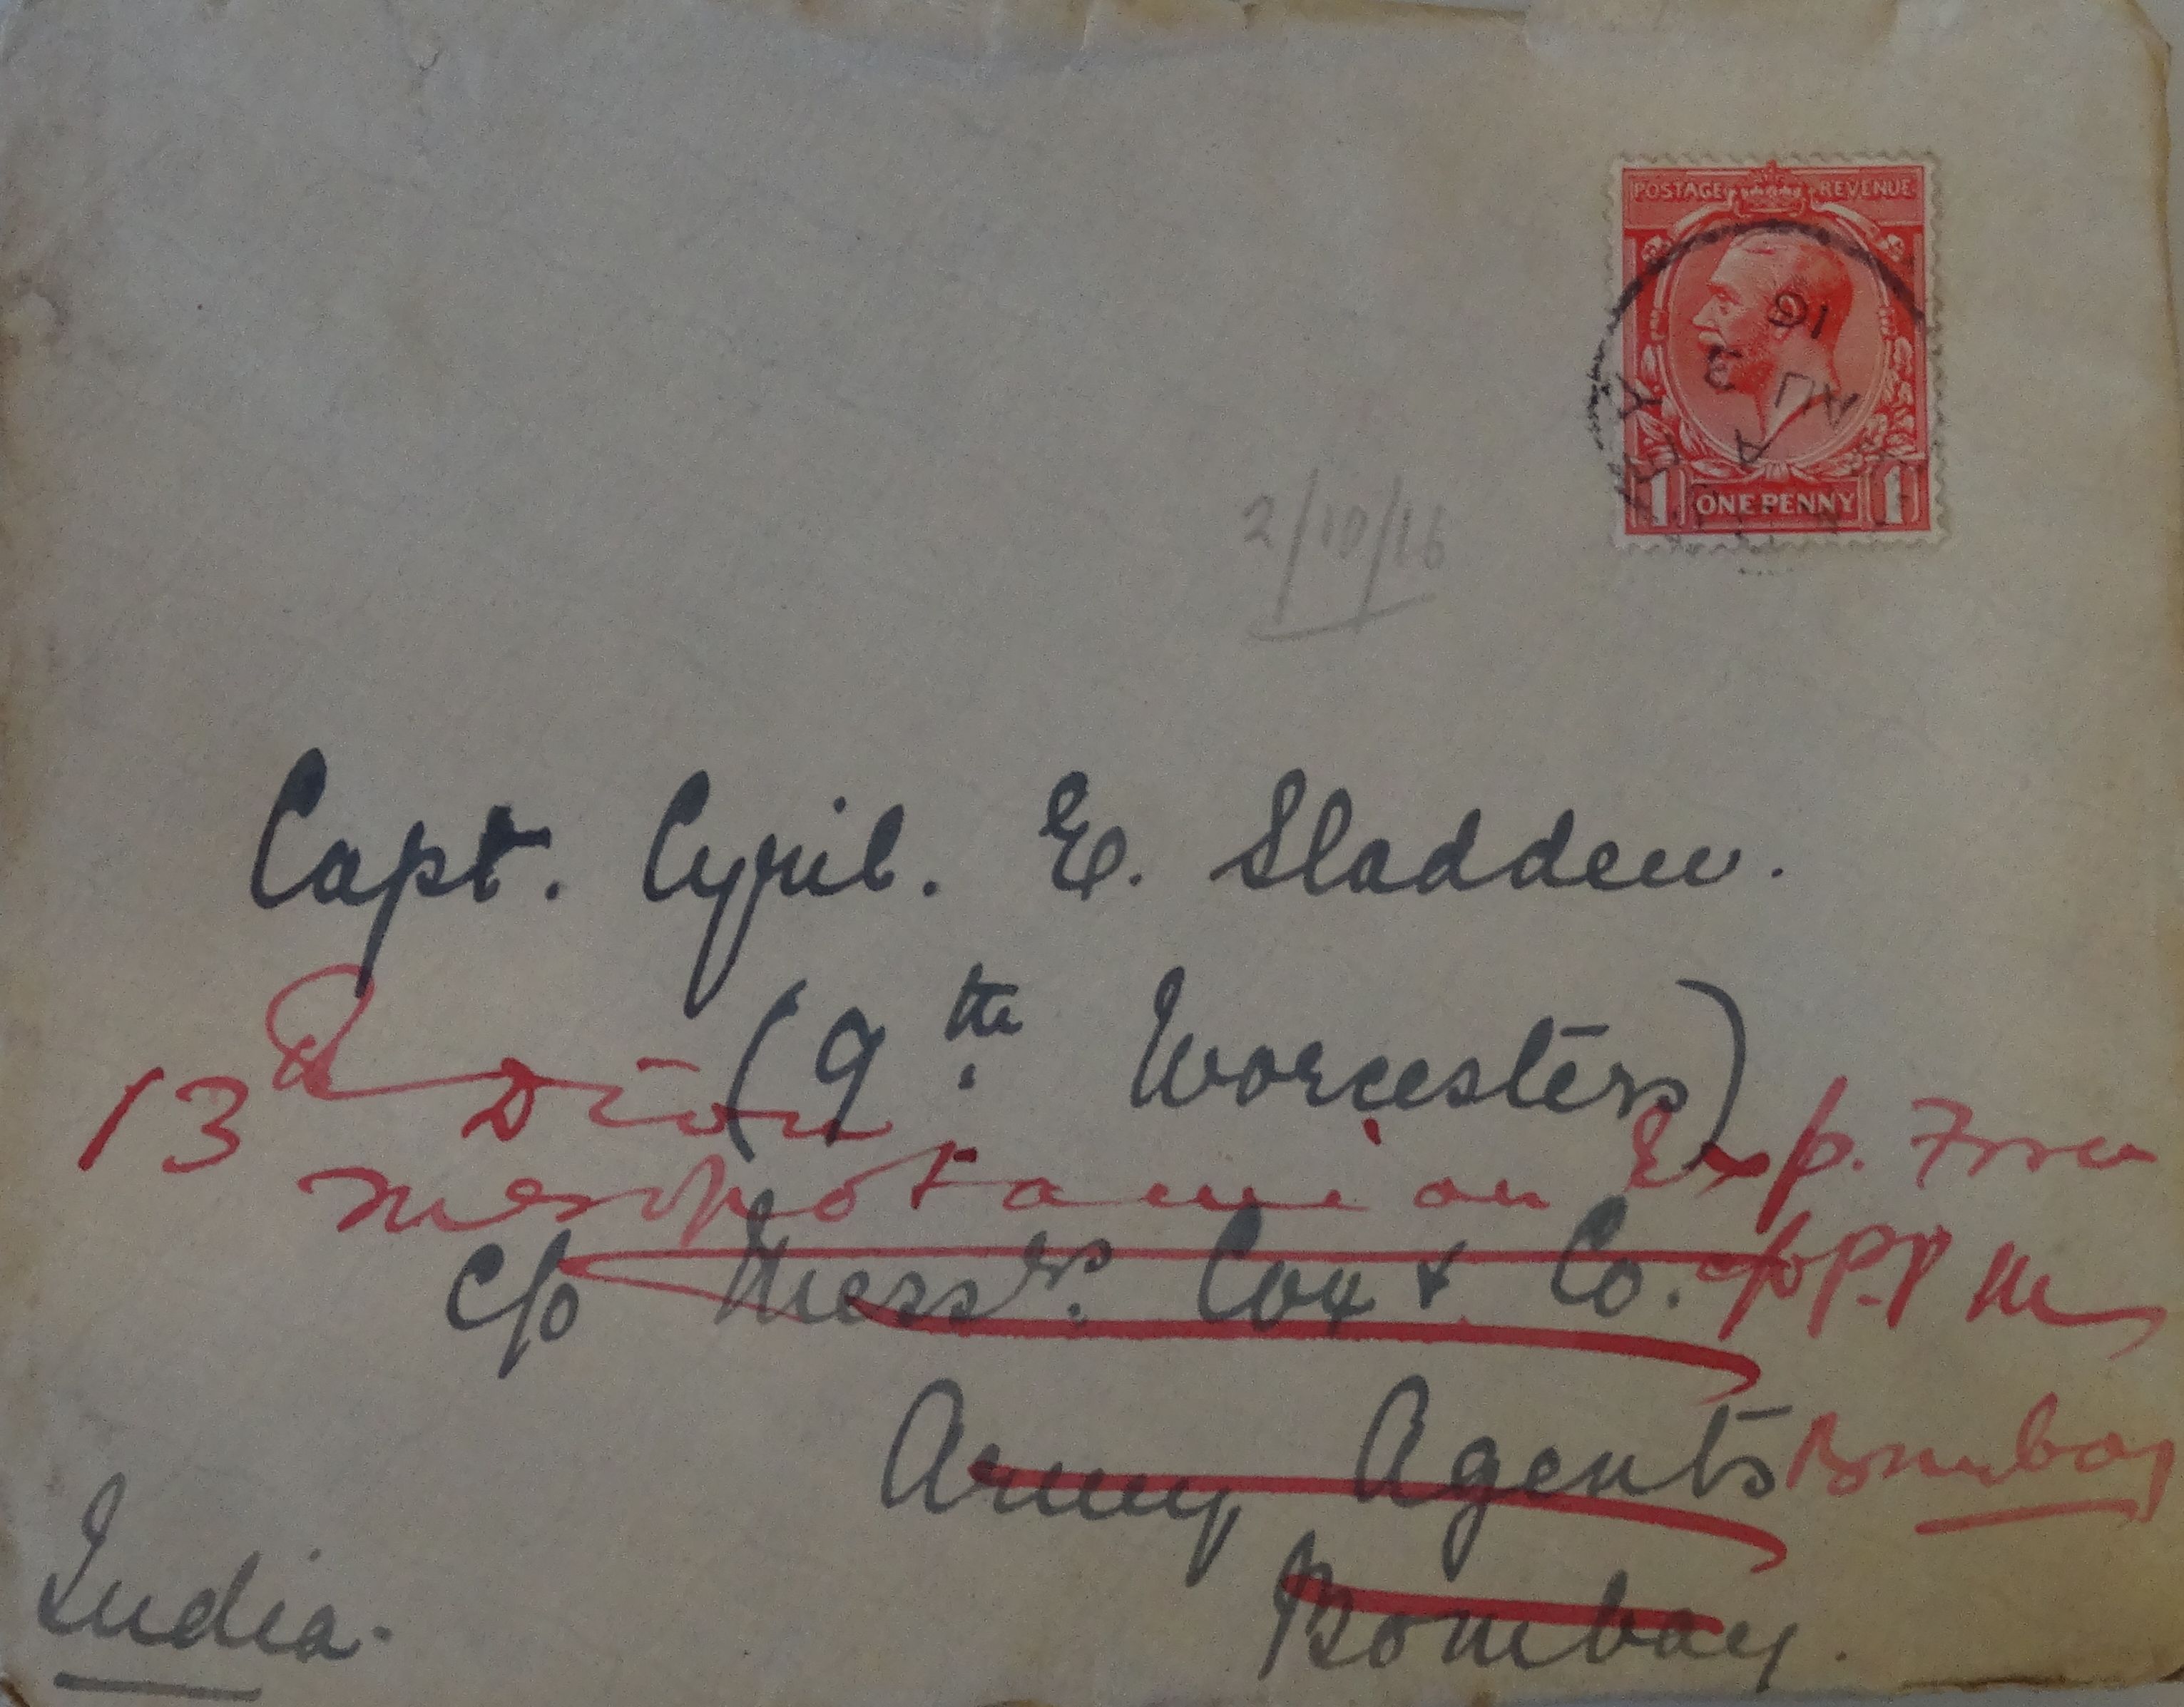 POSTAGE REVENUE
16
AU 3
A
1 ONE PENNY 1
2/10/16
Capt. Cyril. E. Sladden.
(9th Worcesters)
13th Divn
Mesopotamian Exp. Force
c/o Messrs. Cox & Co. c/o P.P M
Army Agents Bombay
Bombay.
India.